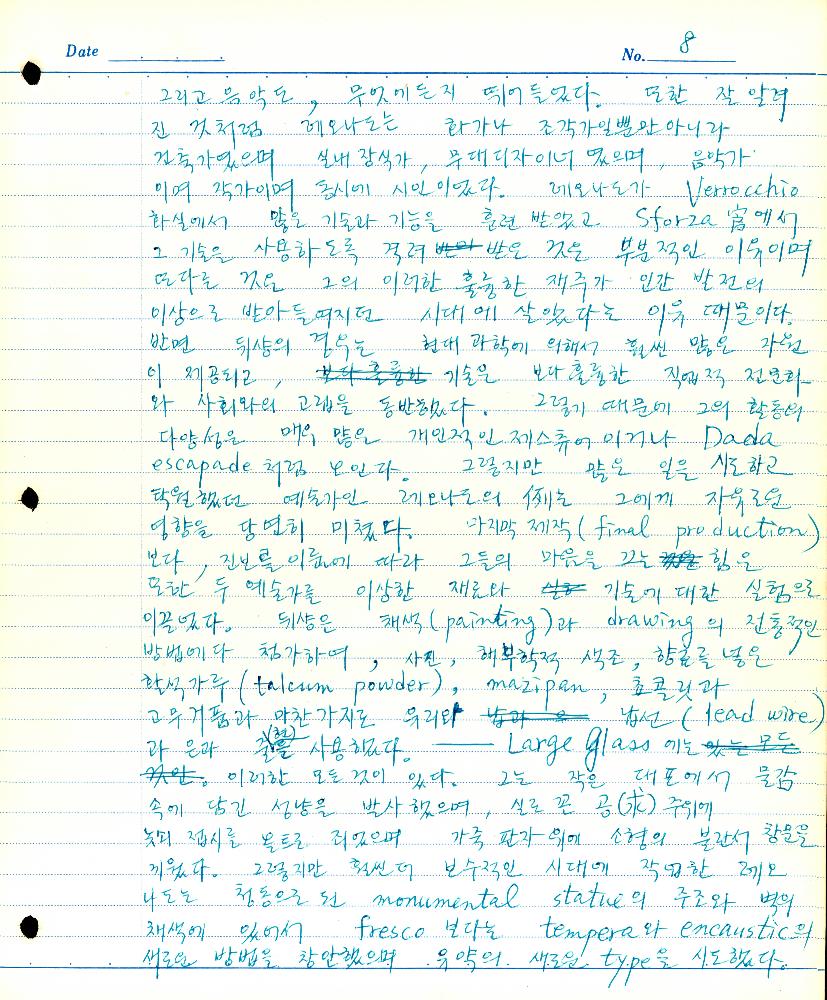 Date No. 8
그리고 음악도, 무엇에든지 뛰어들었다. 또한 잘 알려
진 것처럼 레오나도는 화가나 조각가일뿐만아니라
건축가였으며 실내 장식가, 무대디자이너 였으며, 음악가
이며 작가이며 동시에 시인이었다. 레오나도가 Verrocchio
화실에서 많은 기술과 기능을 훈련 받았고 Sforza 宮에서
그 기술을 사용하도록 격려 받은 것은 부분적인 이유이며
또다른 것은 그의 이러한 훌륭한 재주가 인간 발전의
이상으로 받아들여지던 시대에 살았다는 이유 때문이다.
반면 뒤샹의 경우는 현대 과학에 의해서 훨씬 많은 자원
이 제공되고, 보다 훌륭한 기술은 보다 훌륭한 직업적 전문화
와 사회와의 고립을 동반했다. 그렇기 때문에 그의 활동의
다양성은 매우 많은 개인적인 제스츄어 이거나 Dada
escapade 처럼 보인다. 그렇지만 많은 일을 시도하고
탁월했던 예술가인 레오나도의 例는 그에게 자유로운
영향을 당연히 미쳤다. 마지막 제작(final production)
보다, 진보를 이룸에 따라 그들의 마음을 끄는 힘은
또한 두 예술가를 이상한 재료와 기술에 대한 실험으로
이끌었다. 뒤샹은 채색(painting)과 drawing의 전통적인
방법에다 첨가하여, 사진, 해부학적 색조, 향료를 넣은
활석가루(talcum powder), mazipan, 쵸콜릿과
고무거품과 마찬가지로 유리와 납선(lead wire)
과 은과 을 사용하였다. — Large glass 에는 있는 모든
이러한 모든것이 있다. 그는 작은 대포에서 물감
속에 담긴 성냥을 발사했으며, 실로 꼰 공(求) 주위에
놋쇠 접시를 볼트로 죄었으며 가죽 판자위에 소형의 불란서 창문을
끼웠다. 그렇지만 훨씬더 보수적인 시대에 작업한 레오
나도는 청동으로 된 monumental statue의 주조와 벽의
채색에 있어서 fresco 보다는 tempera와 encaustic의
새로운 방법을 창안했으며 유약의 새로운 type을 시도했다.